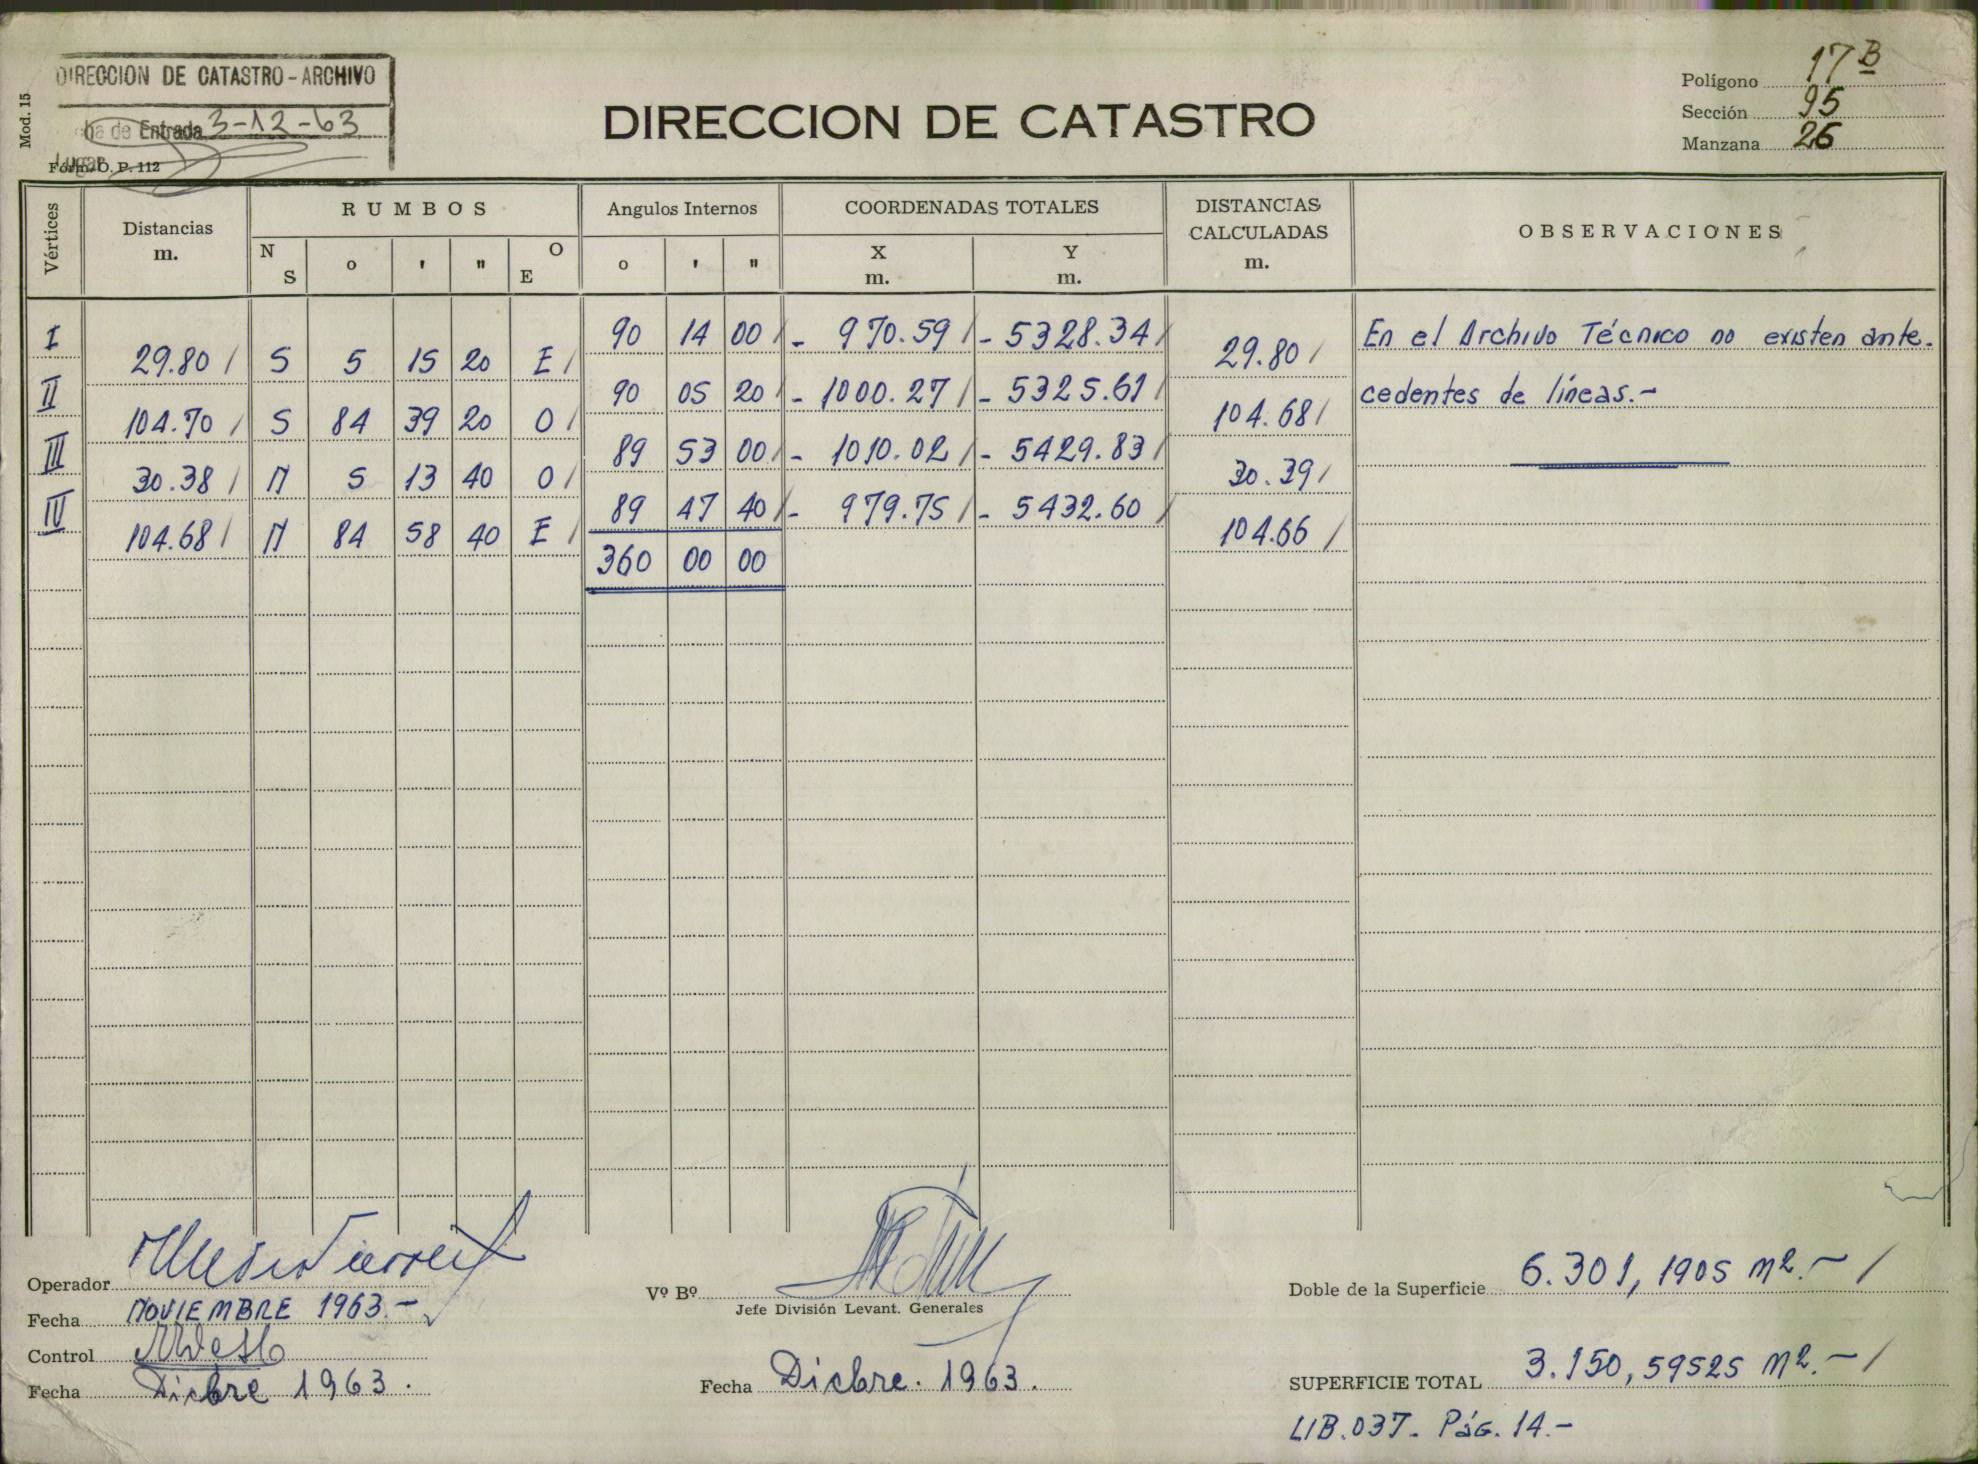 DIRECCION DE CATASTRO - ARCHIVO
de Entrada 3-12-63
Lugar
Mod. 15
Fórm. O. P. 112
DIRECCION DE CATASTRO
Polígono 17 B
Sección 95
Manzana 26
Vértices Distancias m. RUMBOS N S o ' " O E Angulos Internos o ' " COORDENADAS TOTALES X m. Y m. DISTANCIAS CALCULADAS m. OBSERVACIONES
I 90 14 00 / - 970.59 / - 5328.34 / En el Archivo Técnico no existen ante-
29.80 / S 5 15 20 E / 29.80 /
II 90 05 20 / - 1000.27 / - 5325.61 / cedentes de líneas.-
104.70 / S 84 39 20 O / 104.68 /
III 89 53 00 / - 1010.02 / - 5429.83 /
30.38 / N 5 13 40 O / 30.39 /
IV 89 47 40 / - 979.75 / - 5432.60 /
104.68 / N 84 58 40 E / 104.66 /
360 00 00
Operador
Fecha NOVIEMBRE 1963.-
Control
Fecha Dicbre 1963.
Vº Bº
Jefe División Levant. Generales
Fecha Dicbre. 1963.
Doble de la Superficie 6.301,1905 m2.- /
SUPERFICIE TOTAL 3.150,59525 m2.- /
LIB.037- PáG. 14.-